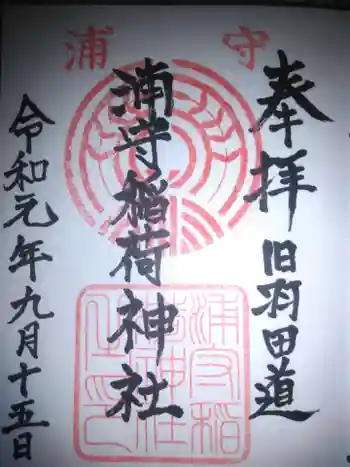 浦守
奉拝
旧羽田道
浦守稲荷神社
令和元年九月十五日
浦守稲
荷神社